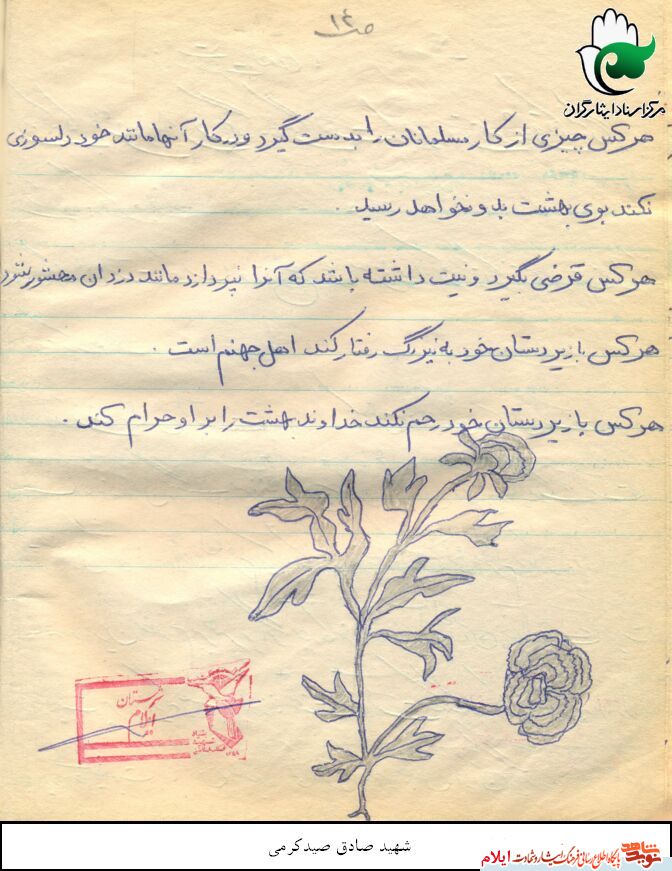 ص ۱۴
مرکز اسناد ایثارگران
هر کس چیزی از کار مسلمانان را بدست گیرد و در کار آنها مانند خود دلسوزی
نکند بوی بهشت بدو نخواهد رسید .
هر کس قرضی بگیرد و نیت داشته باشد که آنرا نپردازد مانند دزدان محشور بشود
هر کس با زیر دستان خود به نیرنگ رفتار کند اهل جهنم است .
هر کس با زیر دستان خود رحم نکند خداوند بهشت را بر او حرام کند .
ایلام
شهید صادق صیدکرمی
نوید شاهد پایگاه اطلاع رسانی فرهنگ ایثار و شهادت ایلام